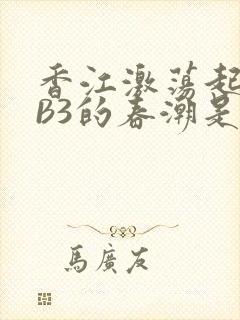 香江激荡起
B3的春潮是
馬廣友